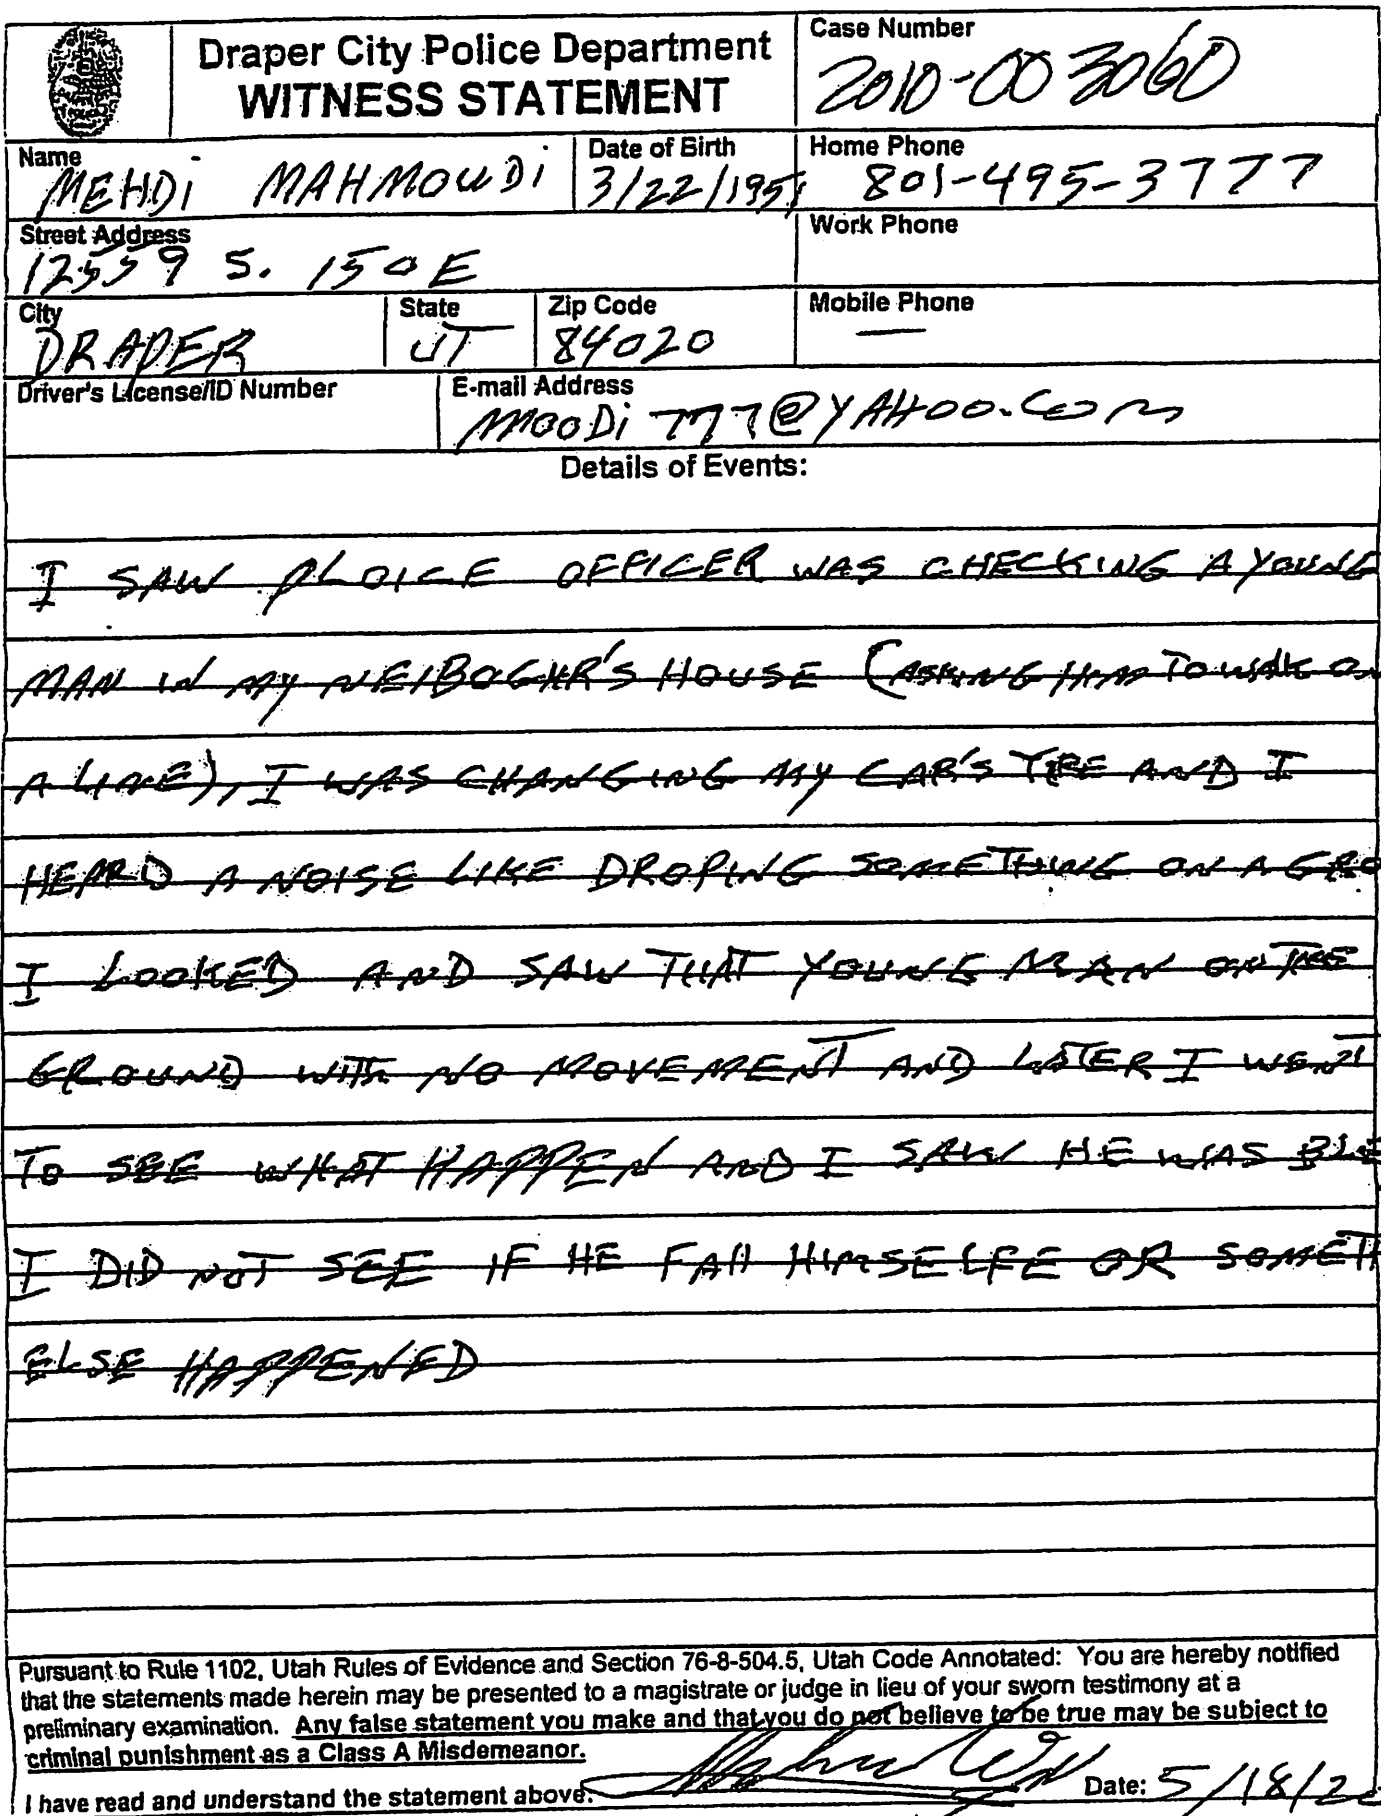 Draper City Police Department
WITNESS STATEMENT
Case Number
2010-003060
Name
MEHDI MAHMOUDI
Date of Birth
3/22/1951
Home Phone
801-495-3777
Street Address
12559 S. 150 E
Work Phone
City
DRAPER
State
UT
Zip Code
84020
Mobile Phone
—
Driver's License/ID Number
E-mail Address
MOODI777@YAHOO.COM
Details of Events:
I SAW PLOICE OFFICER WAS CHECKING A YOUNG
MAN IN MY NEIBOGHR'S HOUSE (ASKING HIM TO WALK ON
A LINE), I WAS CHANGING MY CAR'S TIRE AND I
HEARD A NOISE LIKE DROPING SOMETHING ON A GRO
I LOOKED AND SAW THAT YOUNG MAN ON THE
GROUND WITH NO MOVEMENT AND LATER I WENT
TO SEE WHAT HAPPEN AND I SAW HE WAS BLE
I DID NOT SEE IF HE FAll HIMSELFE OR SOMETH
ELSE HAPPENED
Pursuant to Rule 1102, Utah Rules of Evidence and Section 76-8-504.5, Utah Code Annotated: You are hereby notified
that the statements made herein may be presented to a magistrate or judge in lieu of your sworn testimony at a
preliminary examination. Any false statement you make and that you do not believe to be true may be subject to
criminal punishment as a Class A Misdemeanor.
I have read and understand the statement above:
Date: 5/18/20